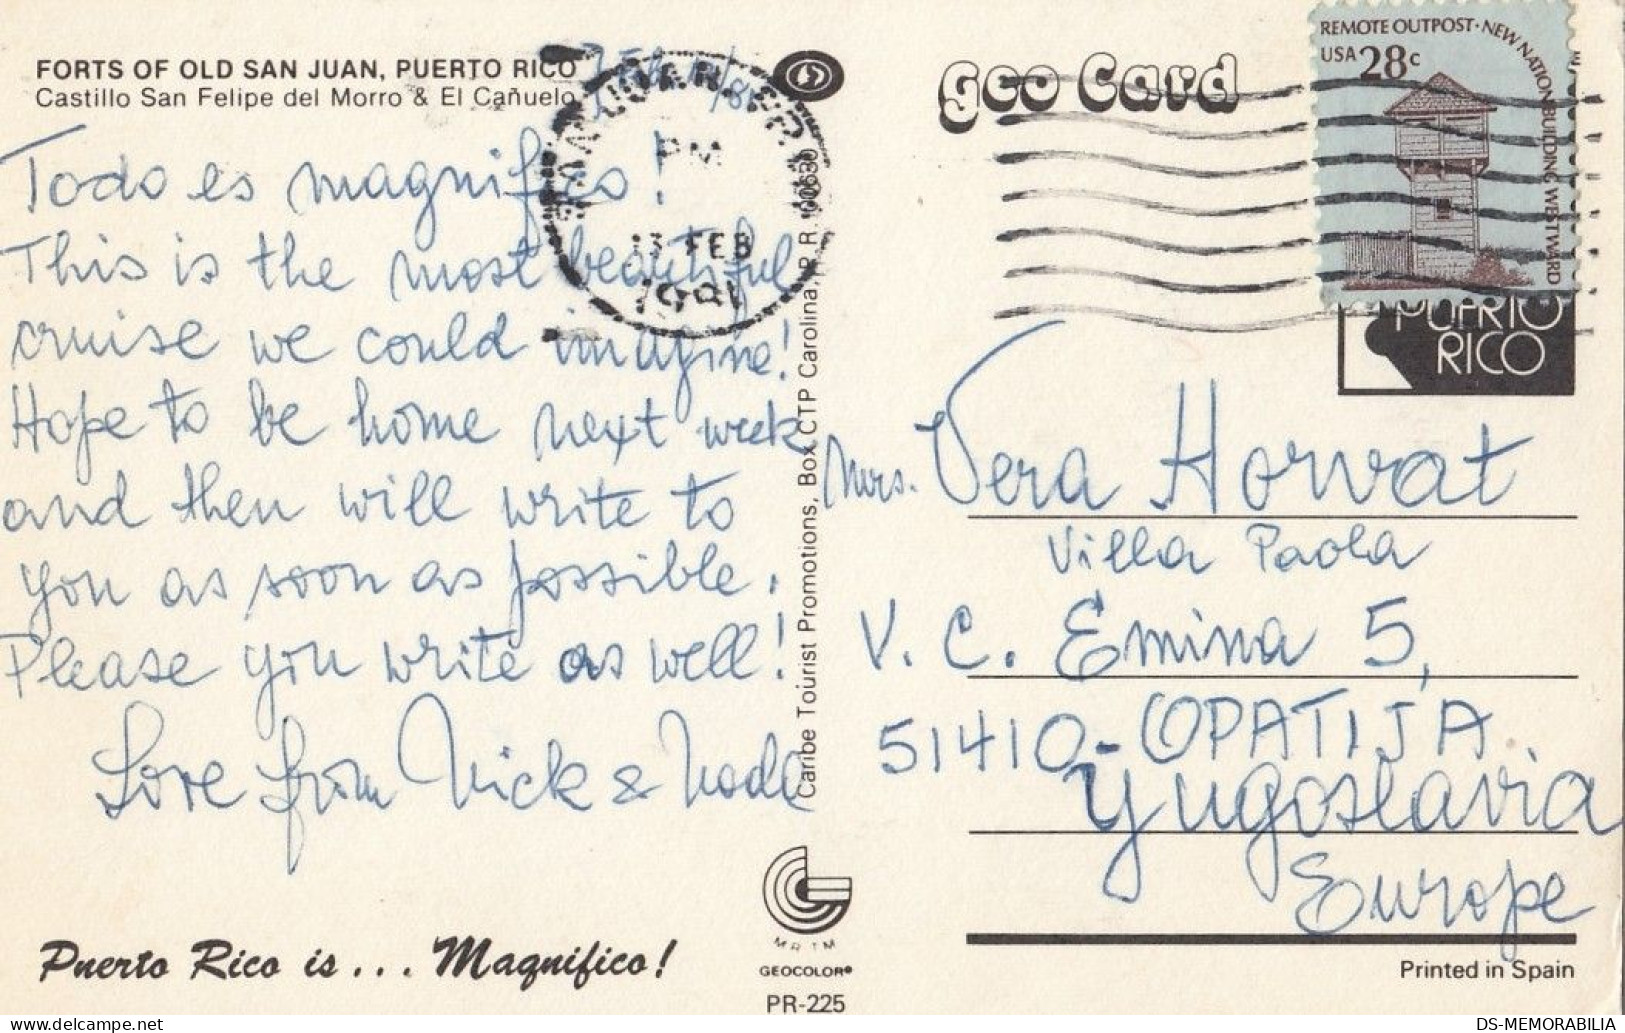 FORTS OF OLD SAN JUAN, PUERTO RICO
Castillo San Felipe del Morro & El Cañuelo
Todo es magnifico!
This is the most beautiful
cruise we could imagine!
Hope to be home next week
and then will write to
you as soon as possible.
Please you write as well!
Love from Nick & Nada
Puerto Rico is... Magnifico!
PM
FEB
1981
Caribe Tourist Promotions, Box CTP Carolina, P.R. R. 100630
MRTM
GEOCOLOR®
PR-225
Geo Card
REMOTE OUTPOST · NEW NATION BUILDING WESTWARD
USA 28c
PUERTO
RICO
Mrs. Vera Horvat
Villa Paola
V. C. Emina 5,
51410 - OPATIJA
Yugoslavia
Europe
Printed in Spain
DS-MEMORABILIA